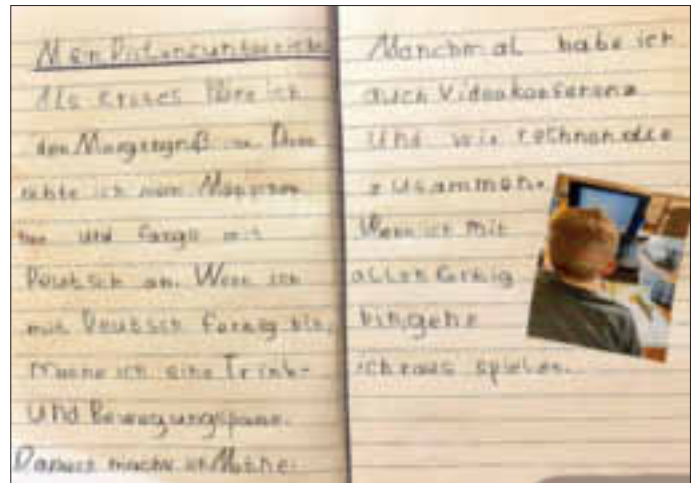 Mein Distanzunterricht
Als erstes höre ich
den Morgengruß an. Dann
ich mein
und fange mit
Deutsch an. Wenn ich
mit Deutsch fertig bin,
mache ich eine Trink-
und Bewegungspause.
Danach mache ich Mathe.
Manchmal habe ich
auch Videokonferenz
und wir rechnen alle
zusammen.
Wenn ich mit
allen fertig
bin, gehe
ich raus spielen.